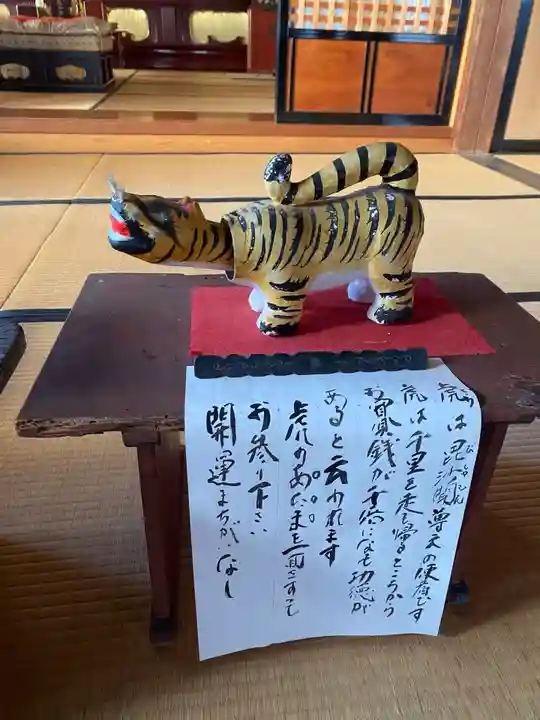 虎は毘沙門尊天の使者です
びしゃもん
虎は千里を走り帰るところから
お賽銭が千倍になる功徳が
あると云われます
虎のあたまを一回さすって
お参り下さい
開運まちがいなし